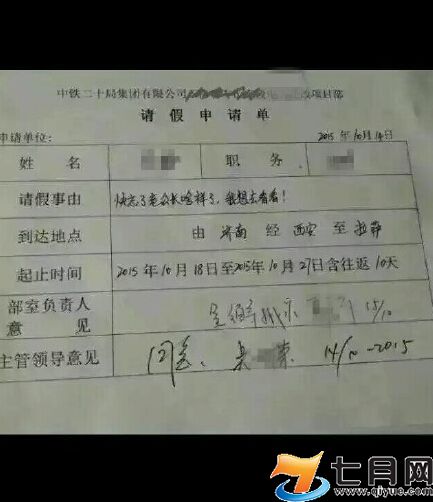 中铁二十局集团有限公司 项目部
请假申请单
申请单位： 2015年10月14日
姓名 职务
请假事由 快忘了老公长啥样了，我想去看看！
到达地点 由济南经西安至拉萨
起止时间 2015年10月18日至2015年10月27日含往返10天
部室负责人
意见 15/10
主管领导意见 同意。 14/10-2015
七月网
www.qiyue.com